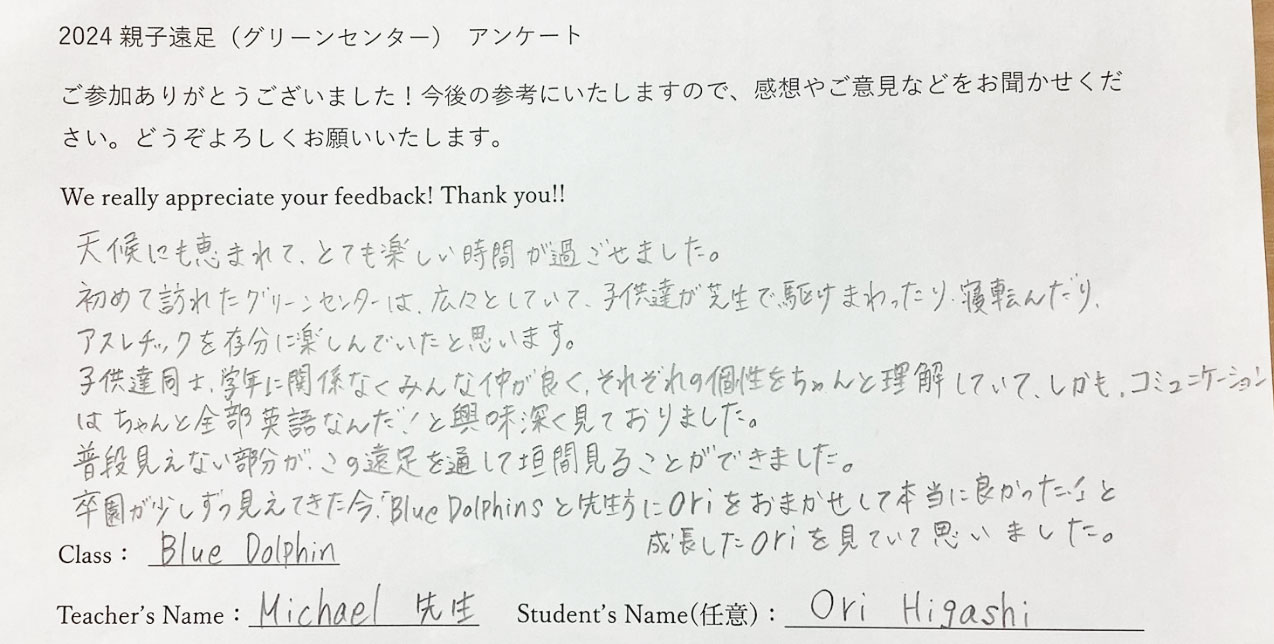 2024 親子遠足（グリーンセンター）　アンケート
ご参加ありがとうございました！今後の参考にいたしますので、感想やご意見などをお聞かせくだ
さい。どうぞよろしくお願いいたします。
We really appreciate your feedback! Thank you!!
天候にも恵まれて、とても楽しい時間が過ごせました。
初めて訪れたグリーンセンターは、広々としていて、子供達が芝生で駆けまわったり、寝転んだり、
アスレチックを存分に楽しんでいたと思います。
子供達同士、学年に関係なくみんな仲が良く、それぞれの個性をちゃんと理解していて、しかも、コミュニケーション
はちゃんと全部英語なんだ！と興味深く見ておりました。
普段見えない部分が、この遠足を通して垣間見ることができました。
卒園が少しずつ見えてきた今、「Blue Dolphinsと先生方にOriをおまかせして本当に良かった」と
成長したOriを見ていて思いました。
Class： Blue Dolphin
Teacher's Name：Michael 先生　Student's Name(任意)： Ori Higashi